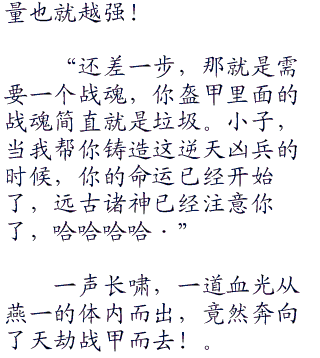 量也就越强！
“还差一步，那就是需
要一个战魂，你盔甲里面的
战魂简直就是垃圾。小子，
当我帮你铸造这逆天凶兵的
时候，你的命运已经开始
了，远古诸神已经注意你
了，哈哈哈哈·”
一声长啸，一道血光从
燕一的体内而出，竟然奔向
了天劫战甲而去！。